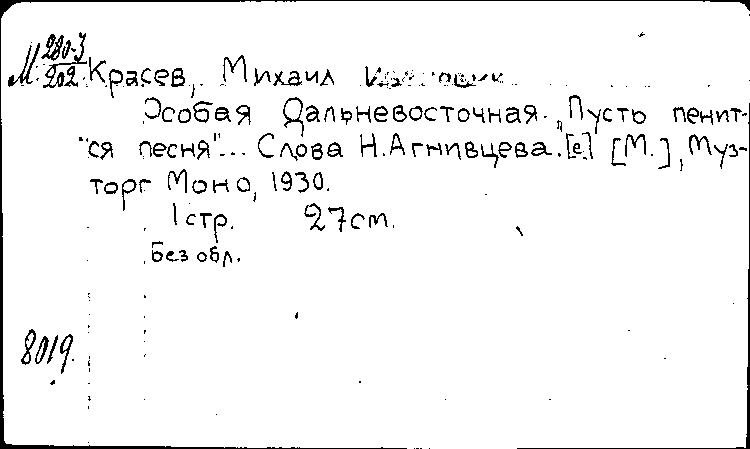 М 280-3
202
Красев, Михаил
Особая Дальневосточная. "Пусть пенит-
ся песня"... Слова Н.Агнивцева. [е] [М.], Муз-
торг Моно, 1930.
1 стр. 27 см.
Без обл.
8019.